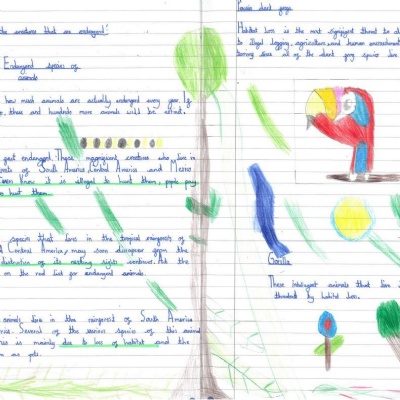 the creatures that are endangerd!
Endangerd species of
animals
how much animals are actually endangerd every year. If
these and hundreds more animals will be extinct.
past endangerd. These magnificent creatures who live in
of South America, Central America and Mexico
even know it is illegal to hunt them, people pay
to hunt them.
species that lives in the tropical rainforests of
Central America, may soon disappear from the
distruction of its nesting sights continues. Add the
on the red list for endangerd animals.
animals live in the rainforest of South America
Several of the various species of this animal
is mainly due to loss of habitat and the
as pets.
Poison dart frogs
Habitat loss is the most significant threat to
to illegal logging, agriculture and human encroachment
of the dart frog species live
Gorilla
These intelligent animals that live in
threatend by habitat loss.